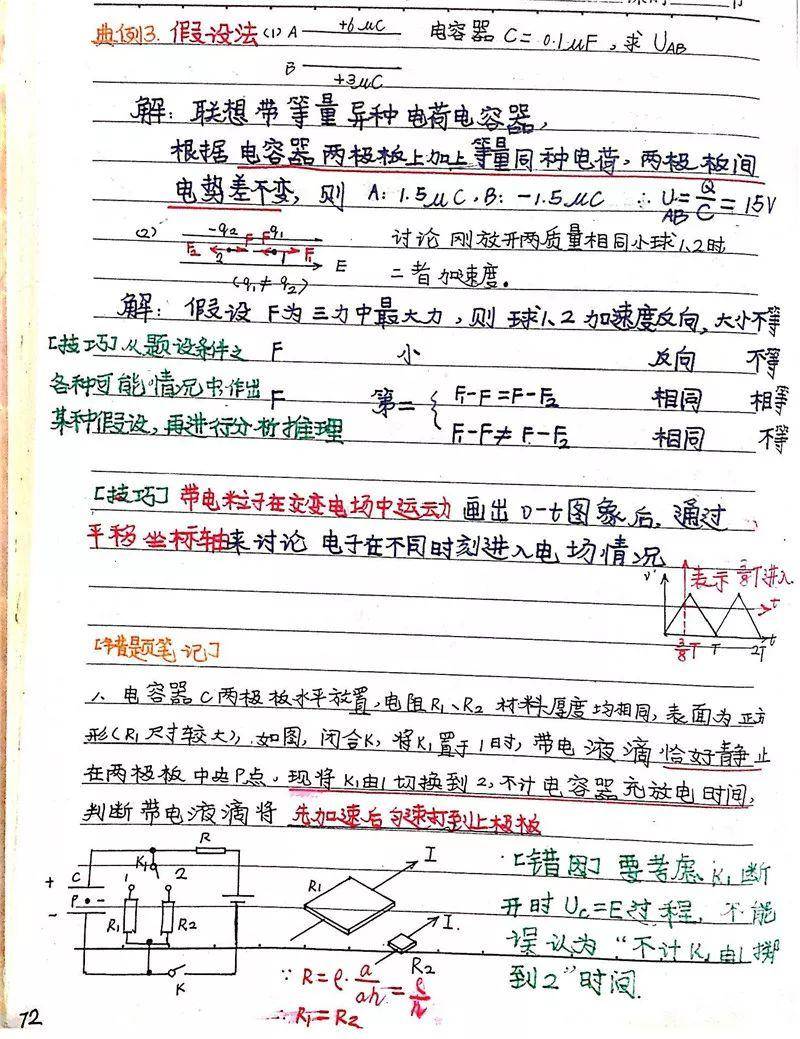 典例3. 假设法 (1) A +6μC 电容器 C = 0.1μF, 求 UAB
B +3μC
解: 联想带等量异种电荷电容器,
根据电容器两极板上加上等量同种电荷, 两极板间
电势差不变, 则 A: 1.5μC, B: -1.5μC ∴ UAB = Q/C = 15V
(2) -q2 q1 讨论刚放开两质量相同小球1、2时
F2 F F F1
2 1 E 二者加速度.
(q1 ≠ q2)
解: 假设 F为三力中最大力, 则 球1、2 加速度反向, 大小不等
[技巧] 从题设条件之 F 小 反向 不等
各种可能情况中作出 F 第二 { F1-F = F-F2 相同 相等
某种假设, 再进行分析推理 F1-F ≠ F-F2 相同 不等
[技巧] 带电粒子在交变电场中运动 画出 v-t图象后, 通过
平移坐标轴来讨论 电子在不同时刻进入电场情况
v 表示 3/8T进入
t
3/8T T 2T t
[错题笔记]
1. 电容器C两极板水平放置, 电阻R1、R2 材料厚度均相同, 表面为正方
形(R1尺寸较大), 如图, 闭合K, 将K1置于1时, 带电液滴恰好静止
在两极板中央P点, 现将K1由1切换到2, 不计电容器充放电时间,
判断带电液滴将 先加速后匀速打到上极板
R
K1 1 2
+ C P -
R1 R2
K
R1 I
R2 I.
∵ R = ρ·a/ah = ρ/h
∴ R1 = R2
[错因] 要考虑 K1断
开时 Uc=E过程, 不能
误认为 "不计K1由1掷
到2" 时间.
72